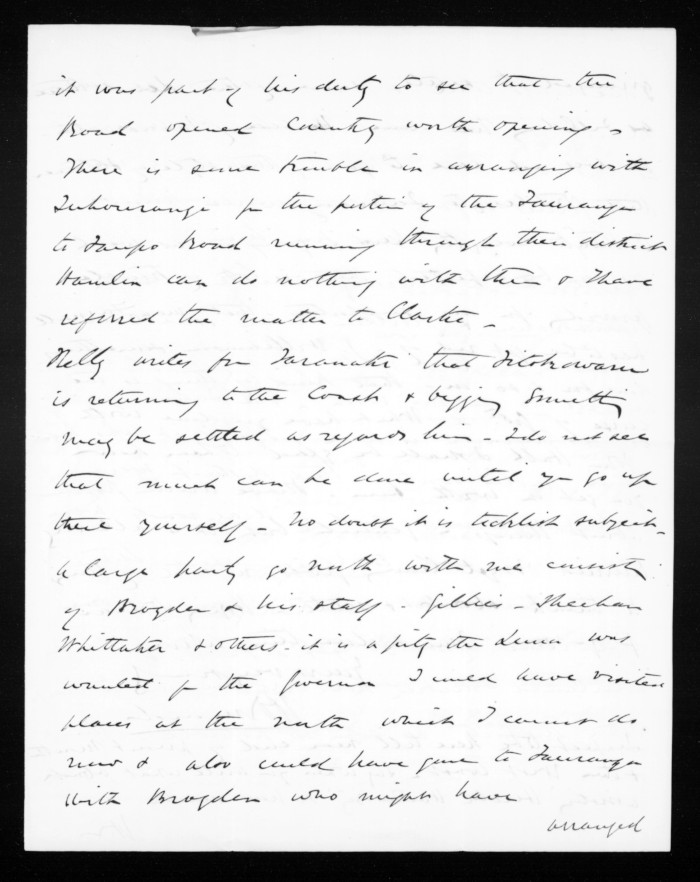 it was part of his duty to see that the
Road opened Country worth opening.
There is some trouble in arranging with
Tuhourangi for the portion of the Tauranga
to Taupo Road running through their district
Hamlin can do nothing with them & I have
referred the matter to Clarke –
Kelly writes from Taranaki that Titokowaru
is returning to the Coast & begging something
may be settled as regards him – I do not see
that much can be done until you go up
there yourself – No doubt it is ticklish subject –
A large party go north with me consisting
of Brogden & his staff – Gillies – Sheehan
Whittaker & others – it is a pity the Luna was
wanted for the Governor I could have visited
places at the north which I cannot do
now & also could have gone to Tauranga
with Brogden who might have
arranged